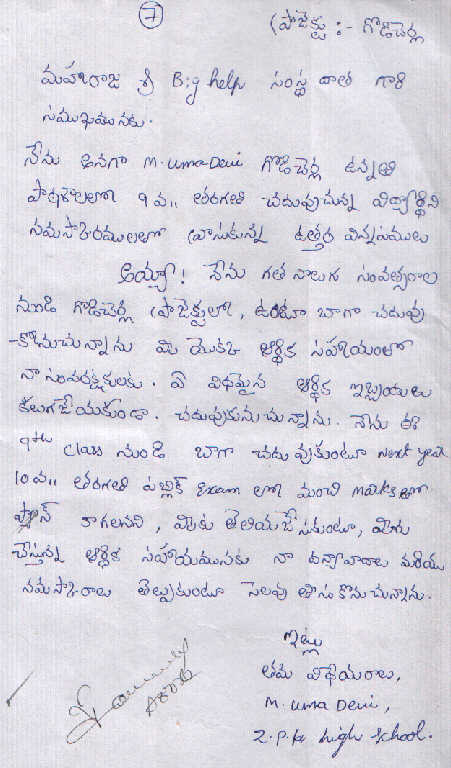 7
ప్రాజెక్టు :- గొడిచెర్ల
మహారాజ శ్రీ Big help సంస్థ దాత గారి
సముఖమునకు.
నేను అనగా M. Uma Devi గొడిచెర్ల ఉన్నత
పాఠశాలలో 9 వ,, తరగతి చదువుచున్న విద్యార్థిని
నమస్కారములతో వ్రాసుకున్న ఉత్తర విన్నపములు
అయ్యా! నేను గత నాలుగు సంవత్సరాల
నుండి గొడిచెర్ల ప్రాజెక్టులో, ఉంటూ బాగా చదువు
-కోనుచున్నాను మీ యొక్క ఆర్థిక సహాయంతో
నా సంరక్షకులకు. ఏ విధమైన ఆర్థిక ఇబ్బందులు
కలుగజేయకుండా. చదువుకునుచున్నాను. నేను ఈ
9th class నుండి బాగా చదువుకుంటూ next year
10 వ,, తరగతి పబ్లిక్ exam లో మంచి marks తో
ప్యాస్ కాగలనని, మీకు తెలియజేసుకుంటూ, మీరు
చేస్తున్న ఆర్థిక సహాయమునకు నా ధన్యవాదాలు మరియు
నమస్కారాలు తెల్పుకుంటూ సెలవు తీసుకొనుచున్నాను.
ఇట్లు
తమ విధేయురాలు,
M. Uma Devi,
Z.P.P. high school.